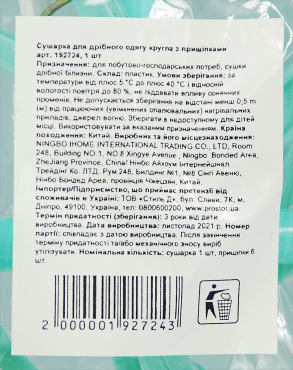 Сушарка для дрібного одягу кругла з прищіпками
арт. 192724, 1 шт
Призначення: для побутово-господарських потреб, сушки
дрібної білизни. Склад: пластик. Умови зберігання: за
температури від плюс 5 °С до плюс 40 °С і відносній
вологості повітря до 80 %, не піддавати впливу сонячних
променів. Не допускається зберігання на відстані менш 0,5 m
(м) від працюючих (увімкнених опалювальних) нагрівальних
приладів, джерел вогню. Зберігати в недоступному для дітей
місці. Використовувати за вказаним призначенням. Країна
походження: Китай. Виробник та його місцезнаходження:
NINGBO IHOME INTERNATIONAL TRADING CO., LTD, Room
248, Building NO.1, NO.8 Xingye Avenue, Ningbo Bonded Area,
ZheJiang Province, China/ Нінбо Айхоум Інтернейшнл
Трейдінг Ко. ЛТД. Рум 248, Билдинг №1, №8 Сингі Авеню,
Нінбо Бондед Ареа, провінція Чжецзян, Китай.
Імпортер/Підприємство, що приймає претензії від
споживачів в Україні: ТОВ «Стиль Д», бул. Слави, 7К, м.
Дніпро, 49100, Україна, тел. 0800600200, www.prostor.ua
Термін придатності (зберігання): 3 роки від дати
виробництва. Дата виробництва: листопад 2021 р. Номер
партії: співпадає з датою виробництва. Після закінчення
терміну придатності та/або механічного зносу виріб
утилізувати. Номінальна кількість: сушарка 1 шт, прищіпки 6
шт.
2 000001 927243